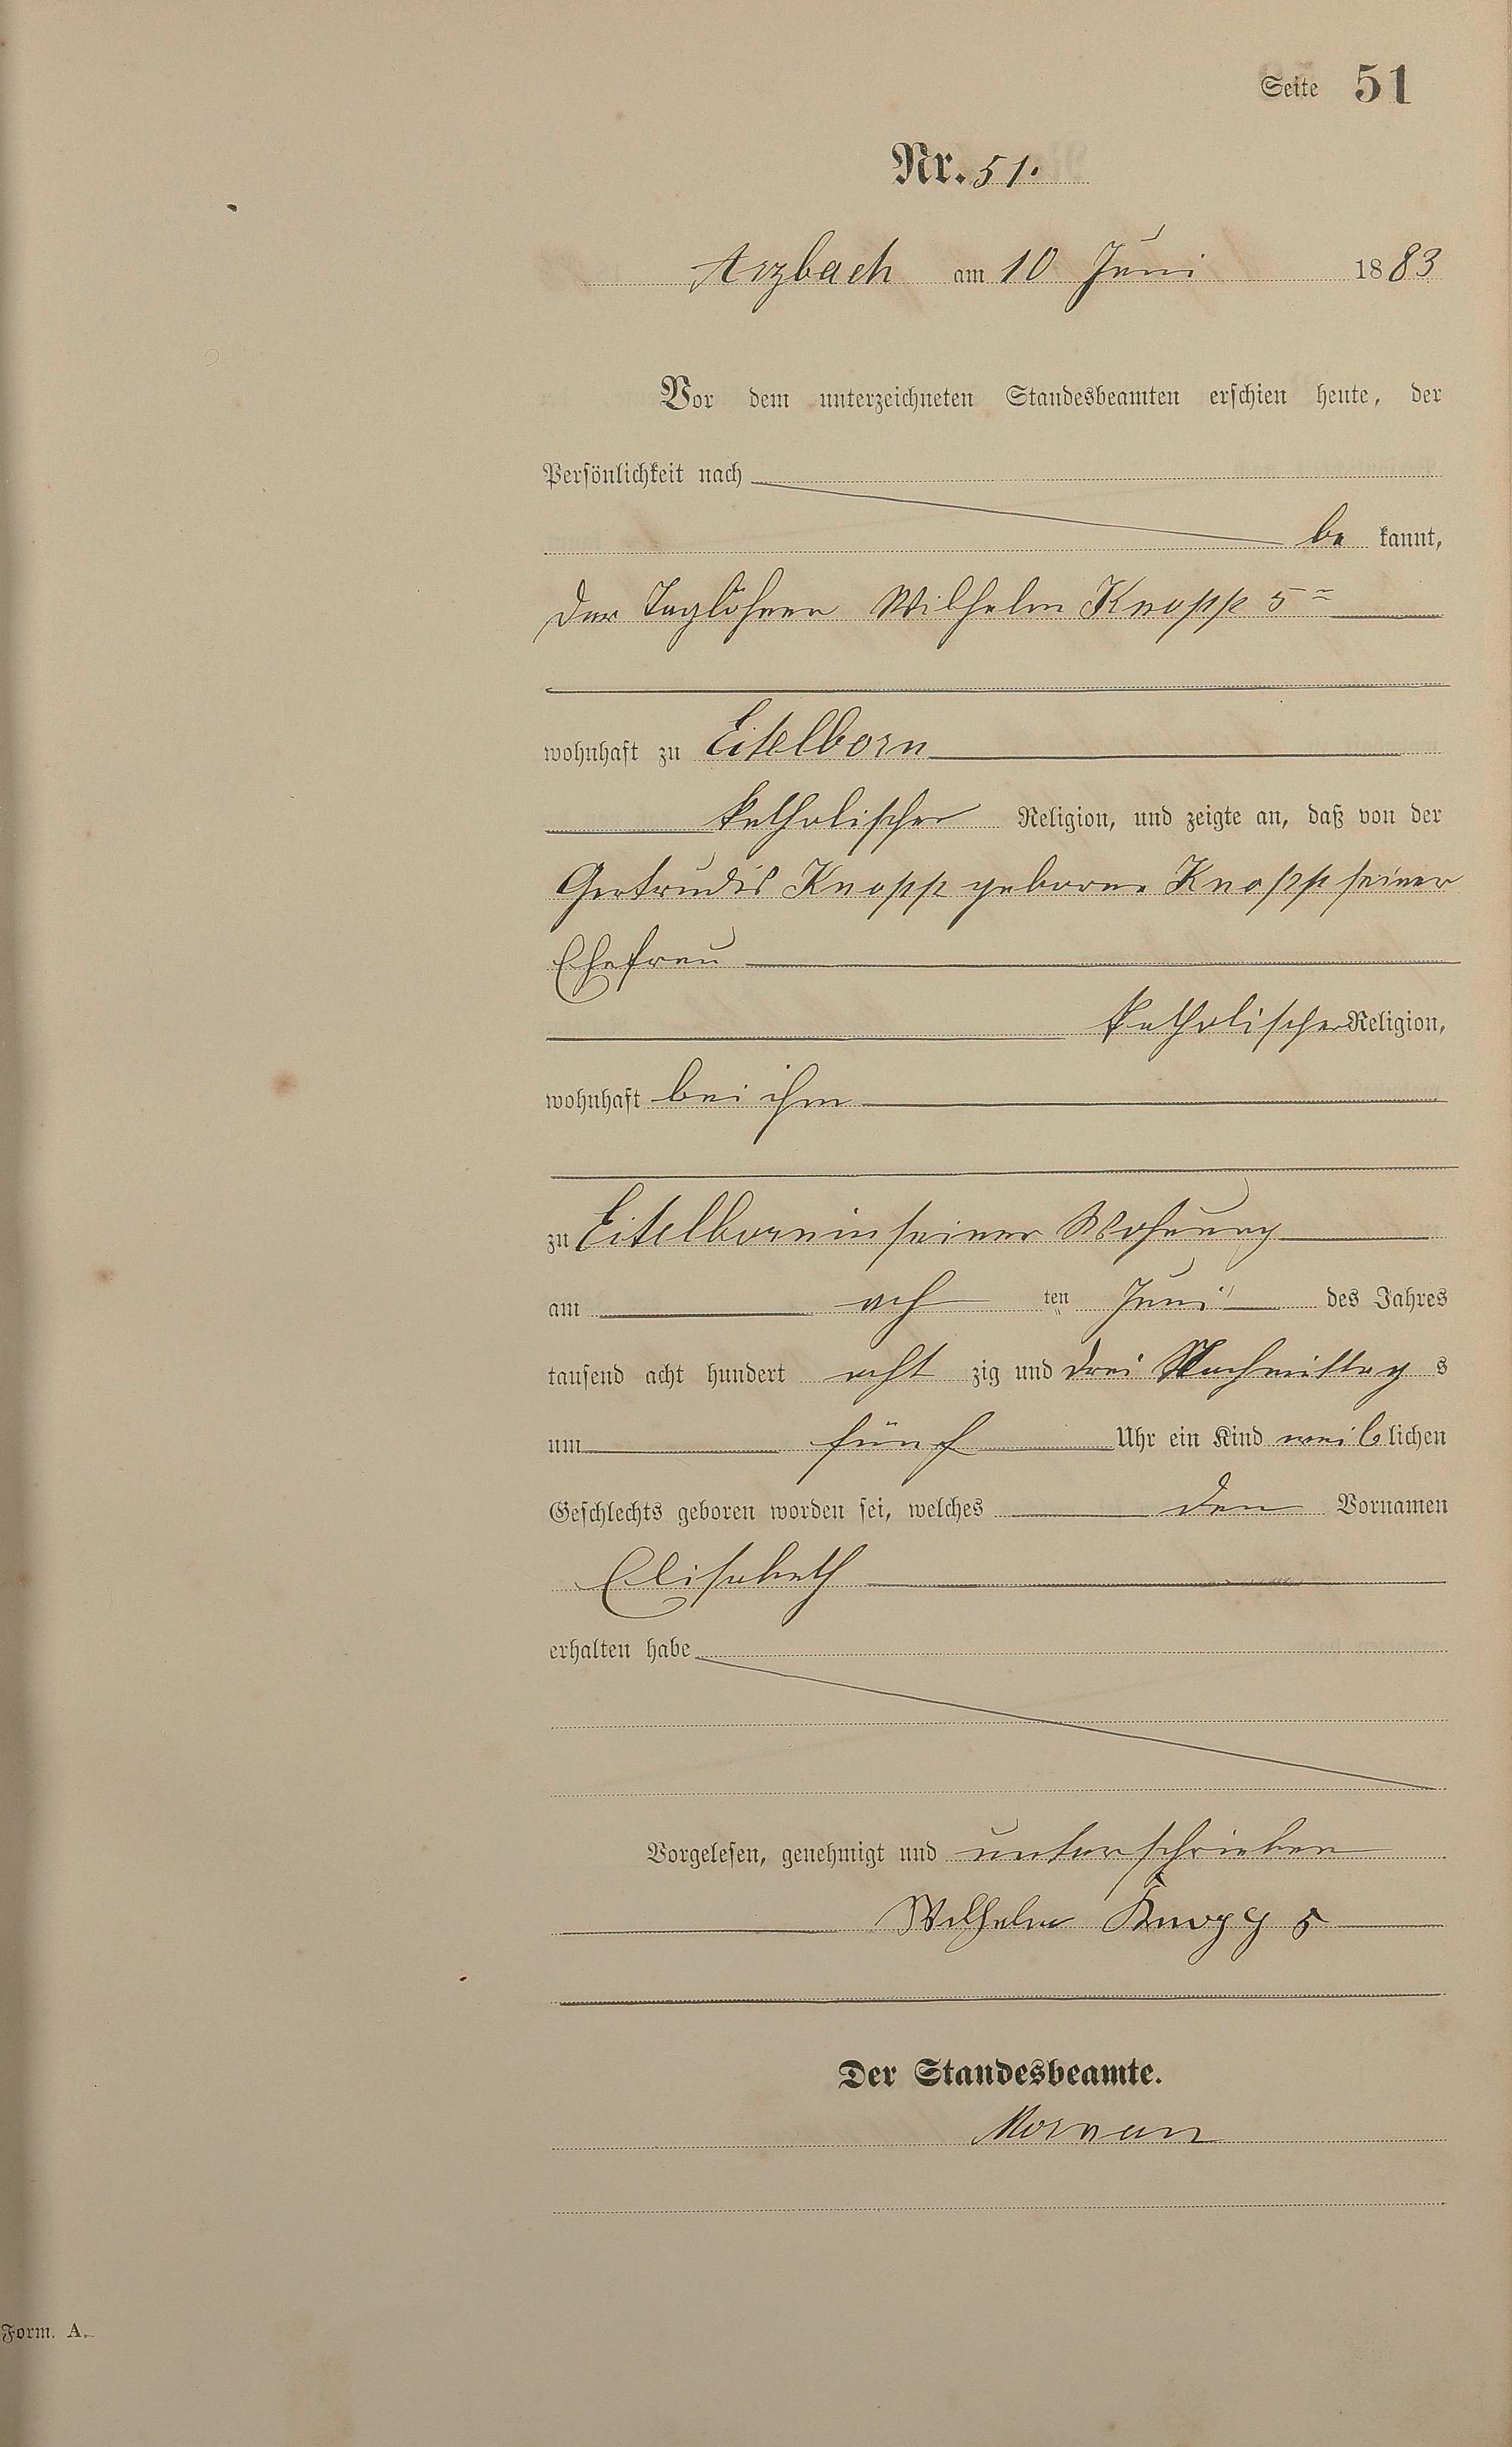 Seite 51
Nr. 51.
Arzbach am 10 Juni 1883
Vor dem unterzeichneten Standesbeamten erschien heute, der
Persönlichkeit nach
be kannt,
der Taglöhner Wilhelm Knopp 5=
wohnhaft zu Eitelborn
katholischer Religion, und zeigte an, daß von der
Gertrudis Knopp geborne Knopp seiner
Ehefrau
katholischer Religion,
wohnhaft bei ihm
zu Eitelborn in seiner Wohnung
am ach ten Juni des Jahres
tausend acht hundert acht zig und drei Nachmittag s
um fünf Uhr ein Kind weiblichen
Geschlechts geboren worden sei, welches den Vornamen
Elisabeth
erhalten habe
Vorgelesen, genehmigt und unterschrieben
Wilhelm Knopp 5
Der Standesbeamte.
Form. A.